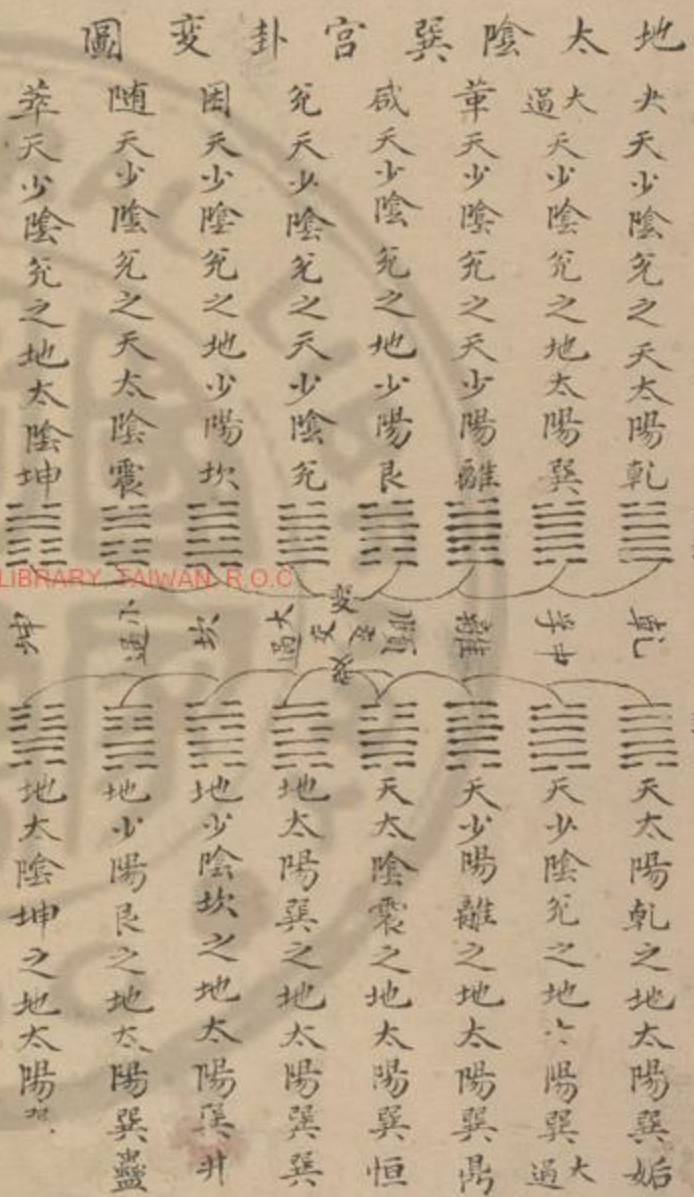 地太陰巽宮卦変圖
夬天少陰兊之天太陽乾
大過天少陰兊之地太陽巽
革天少陰兊之天少陽離
咸天少陰兊之地少陽艮
兊天少陰兊之天少陰兊
困天少陰兊之地少陽坎
随天少陰兊之天太陰震
萃天少陰兊之地太陰坤
乾
中孚
離
頤
変
交
変
大過
坎
小過
坤
天太陽乾之地太陽巽姤
天少陰兊之地陽巽大過
天少陽離之地太陽巽鼎
天太陰震之地太陽巽恒
地太陽巽之地太陽巽巽
地少陰坎之地太陽巽井
地少陽艮之地太陽巽蠱
地太陰坤之地太陽
LIBRARY, TAIWAN, R.O.C